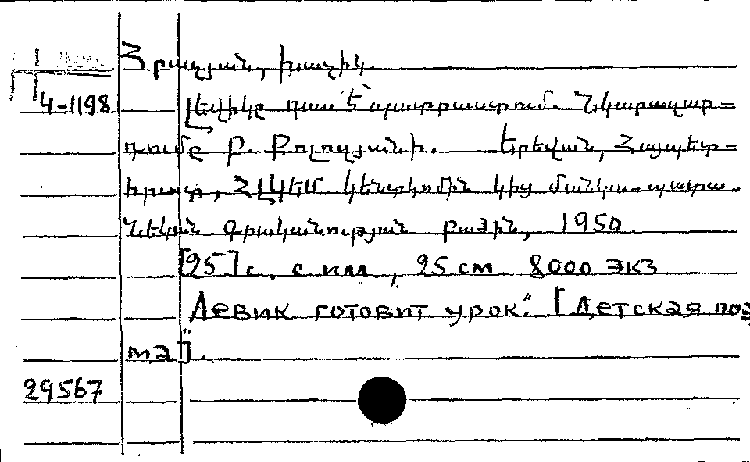 Հրաչյան, Խաչիկ.
4-1198 Լևիկը դաս է պատրաստում. Նկարազար-
դումը Ք. Քոլոզյանի. Երևան, Հայպետ-
հրատ, ՀԼԿԵՄ կենտկոմին կից մանկա-պատա-
նեկան գրականության բաժին, 1950
[25] с. с илл, 25 см 8000 экз
Левик готовит урок". [Детская поэ
ма].
29567